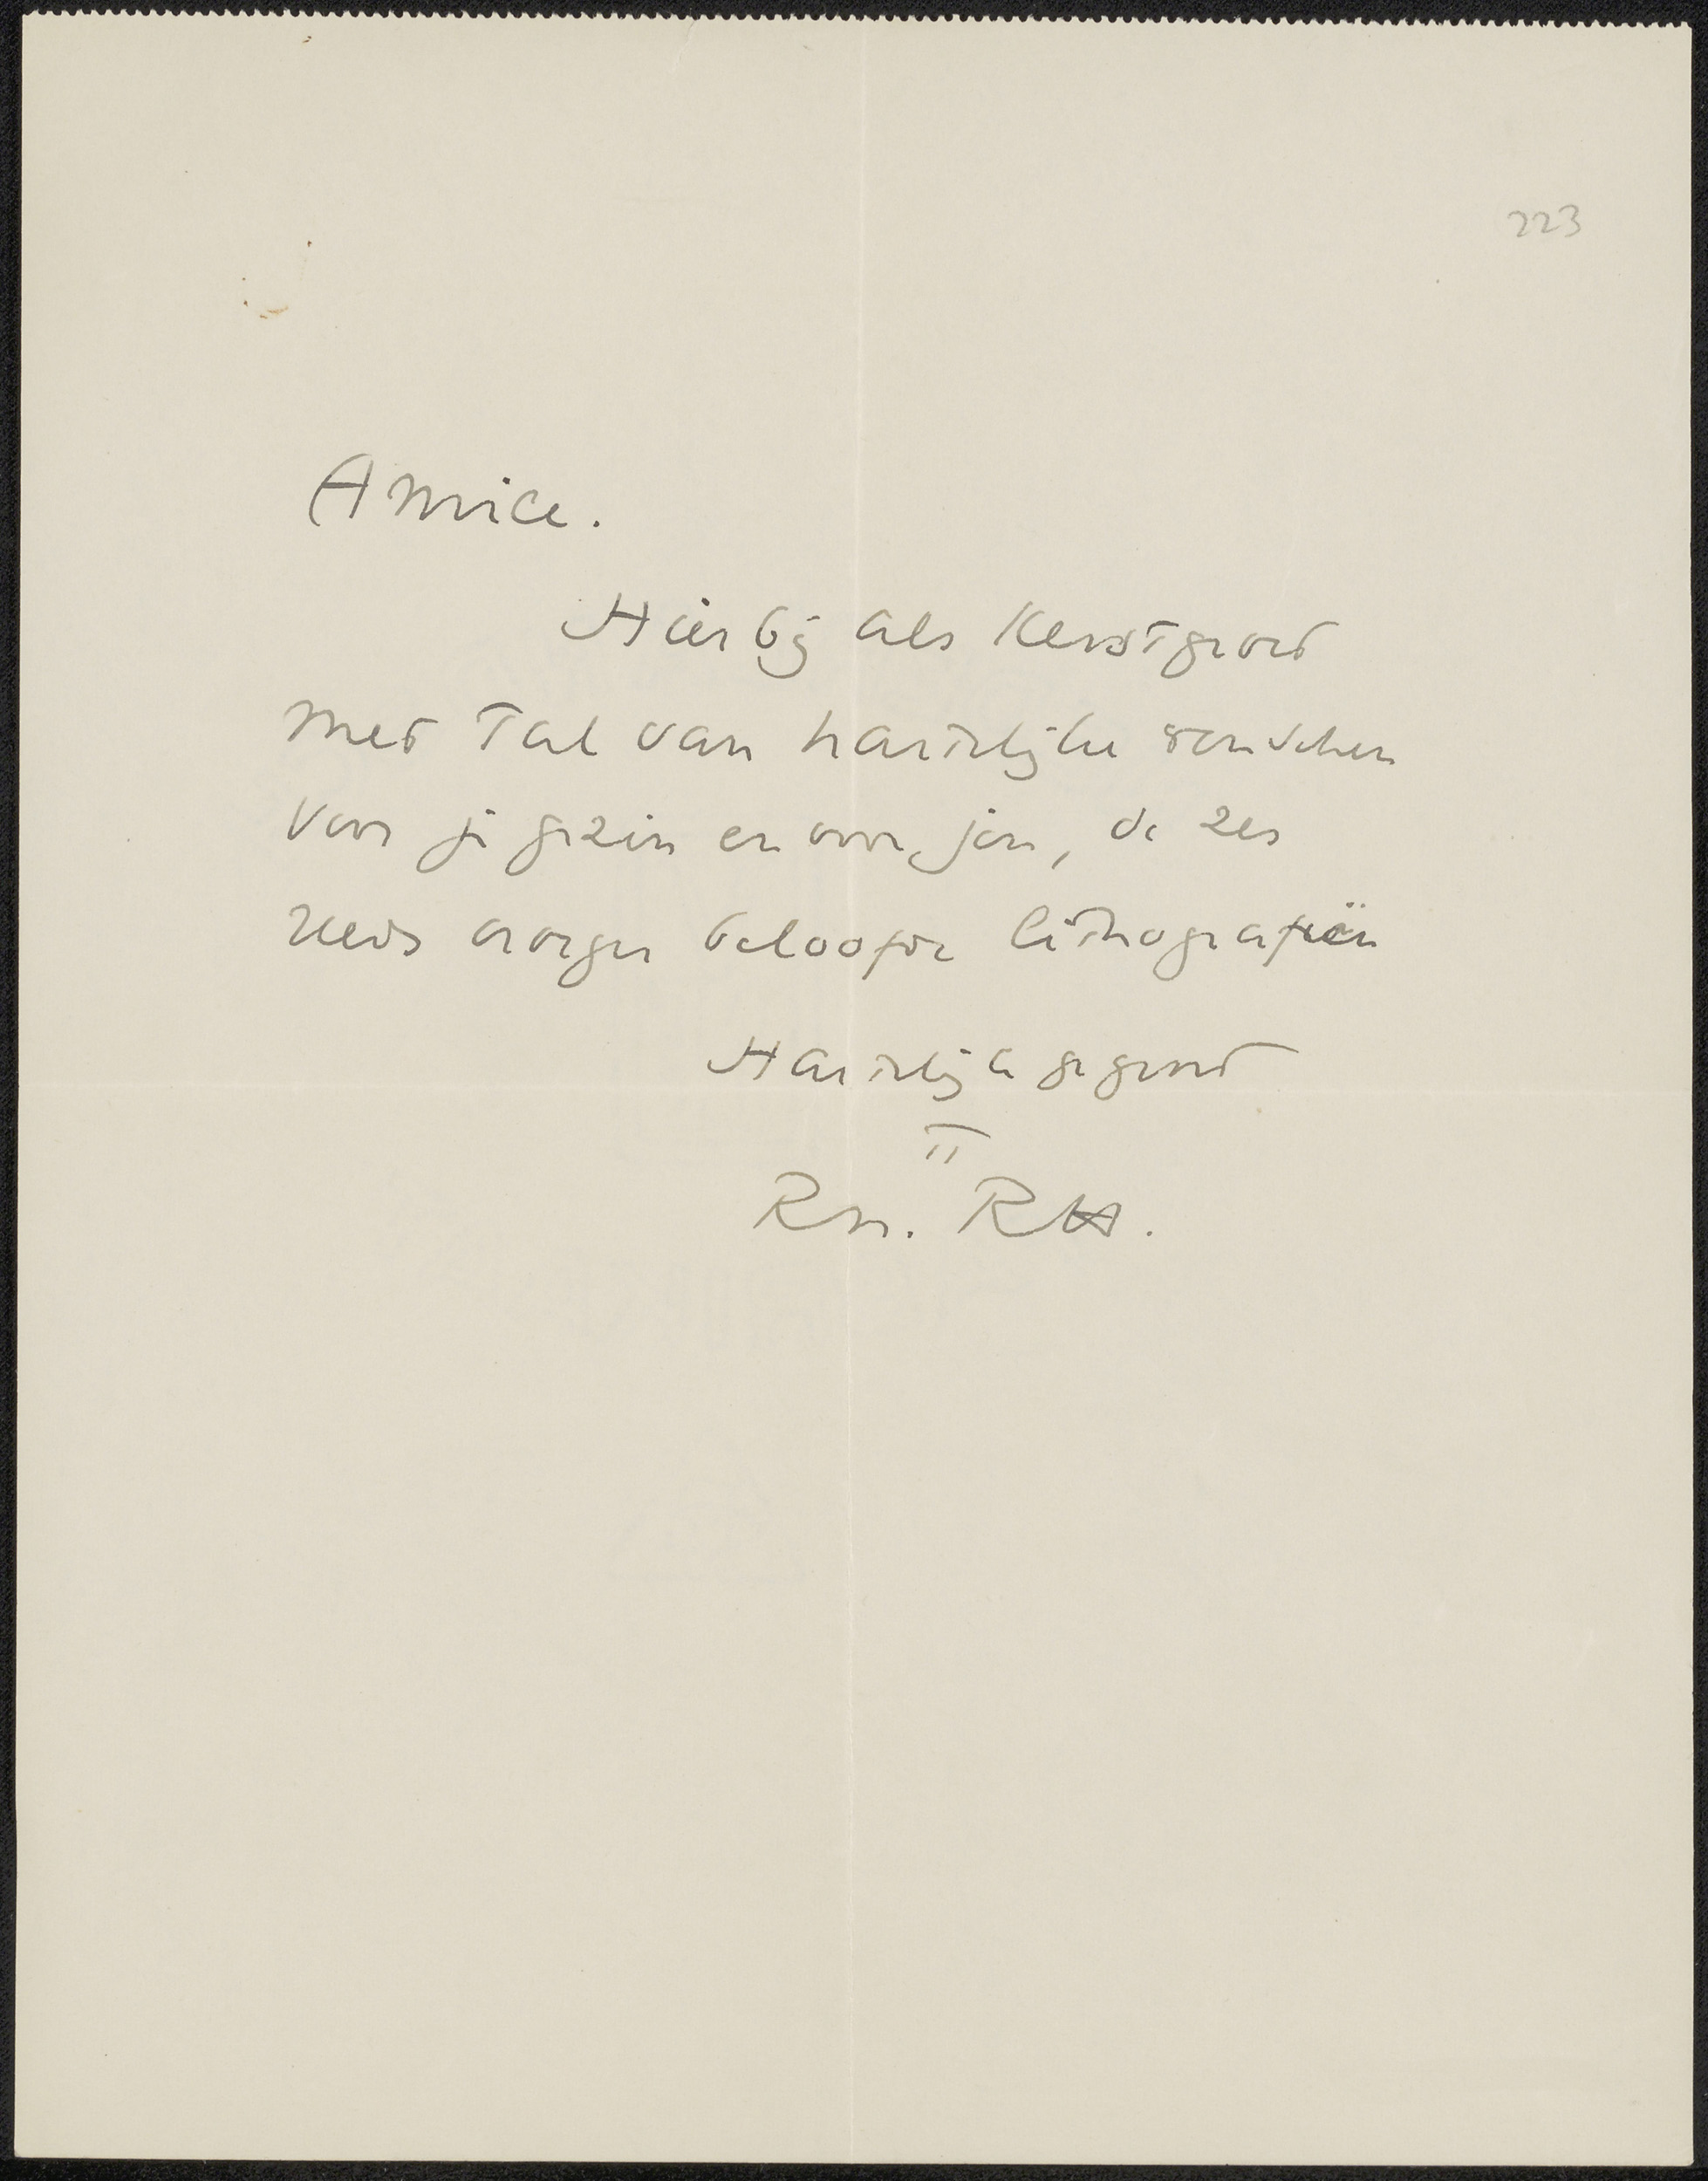 223
Amice.
Hierbij als Kerstgroet
met tal van hartelijke wenschen
voor je gezin en voor jou, de zes
reeds vroeger beloofde lithografiën
Hartelijk gegroet
tt
RN. RH.